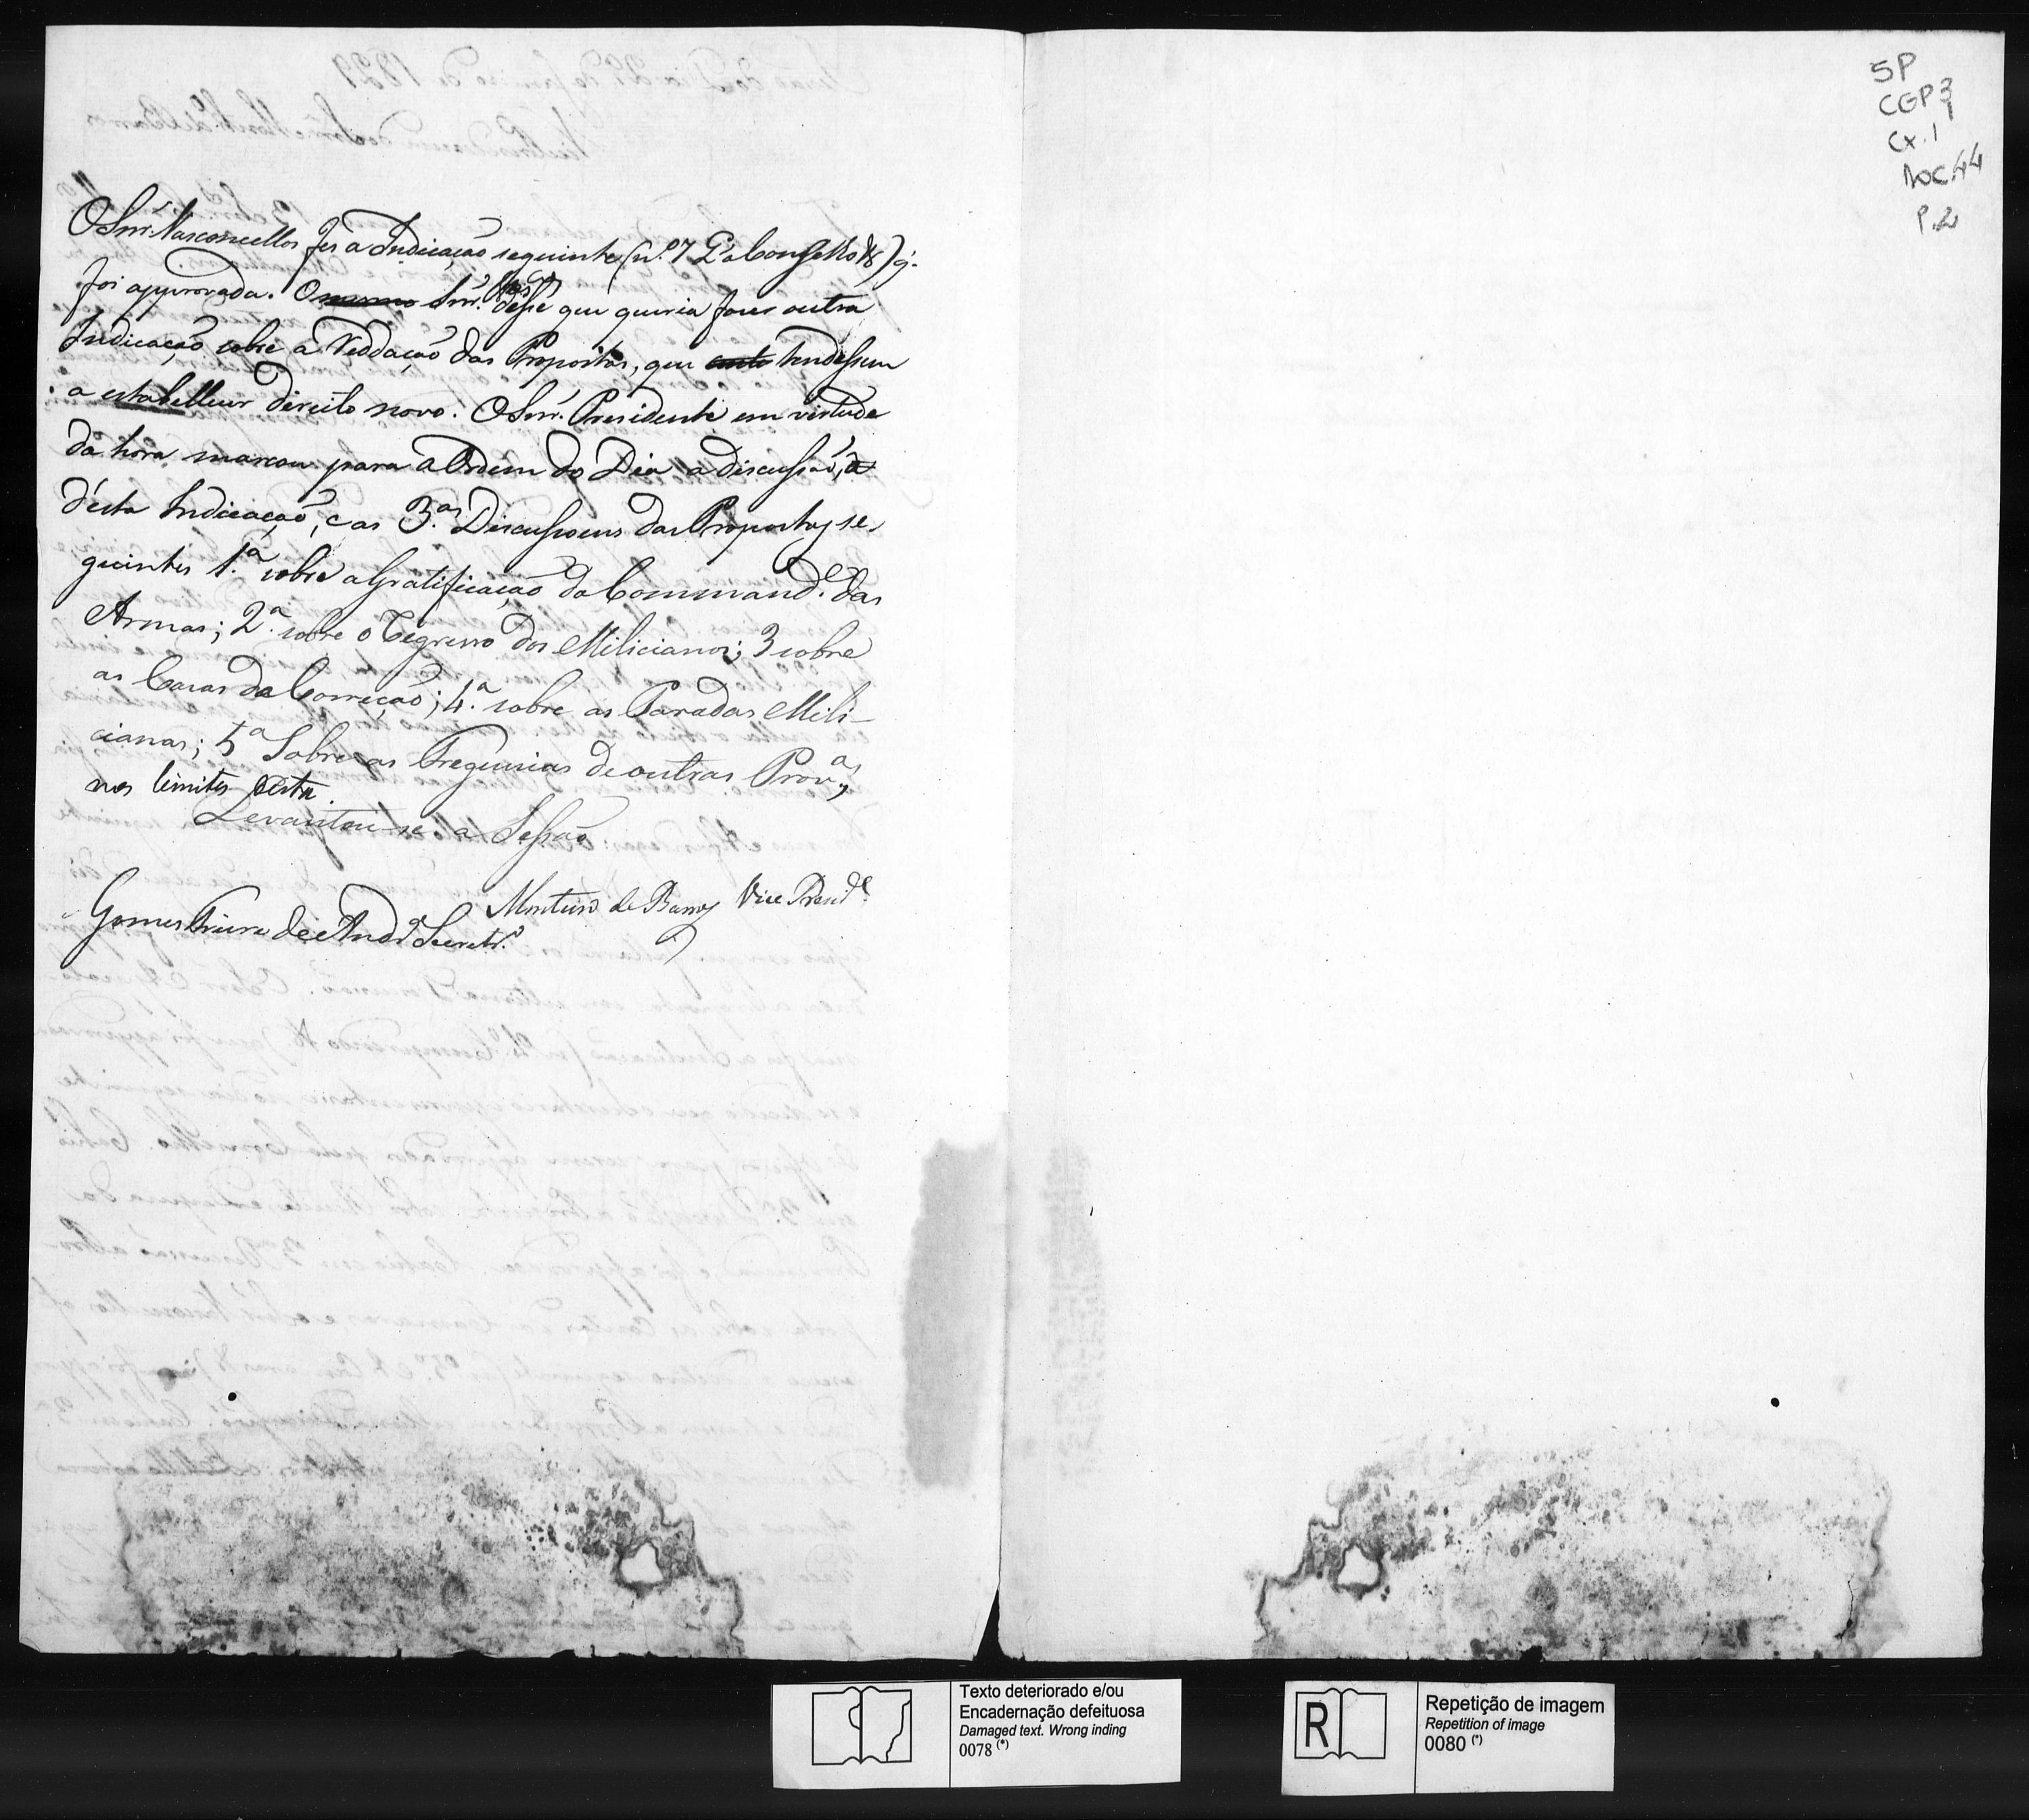 O Snr. Vasconcellos fes a Indicação seguinte (n.º 7 O Conselho &) q.
foi approvada. O mesmo Snr. disse que queria fazer outra
Indicação sobre a Reddação das Propostas, que tendessem
a estabellecer direito novo. O Snr. Presidente em virtude
da hora marcou para a Ordem do Dia a discussão,
d'esta Indicação, e as 3.as Discussoens das Propostas se-
guintes 1.ª sobre a Gratificação do Command.e das
Armas; 2.ª sobre o Regresso dos Milicianos; 3 sobre
as Casas da Correção; 4.ª sobre as Paradas Mili-
cianas; 5ª Sobre as Freguesias de outras Prov.as
nos limites desta.
Levantou-se a Sessão
Monteiro de Barros Vice Presid.e
Gomes Freire de Andr.e Secretr.º
SP
CGP3
Cx. 1
Doc 44
P. 2
Texto deteriorado e/ou
Encadernação defeituosa
Damaged text. Wrong inding
0078 (*)
R
Repetição de imagem
Repetition of image
0080 (*)